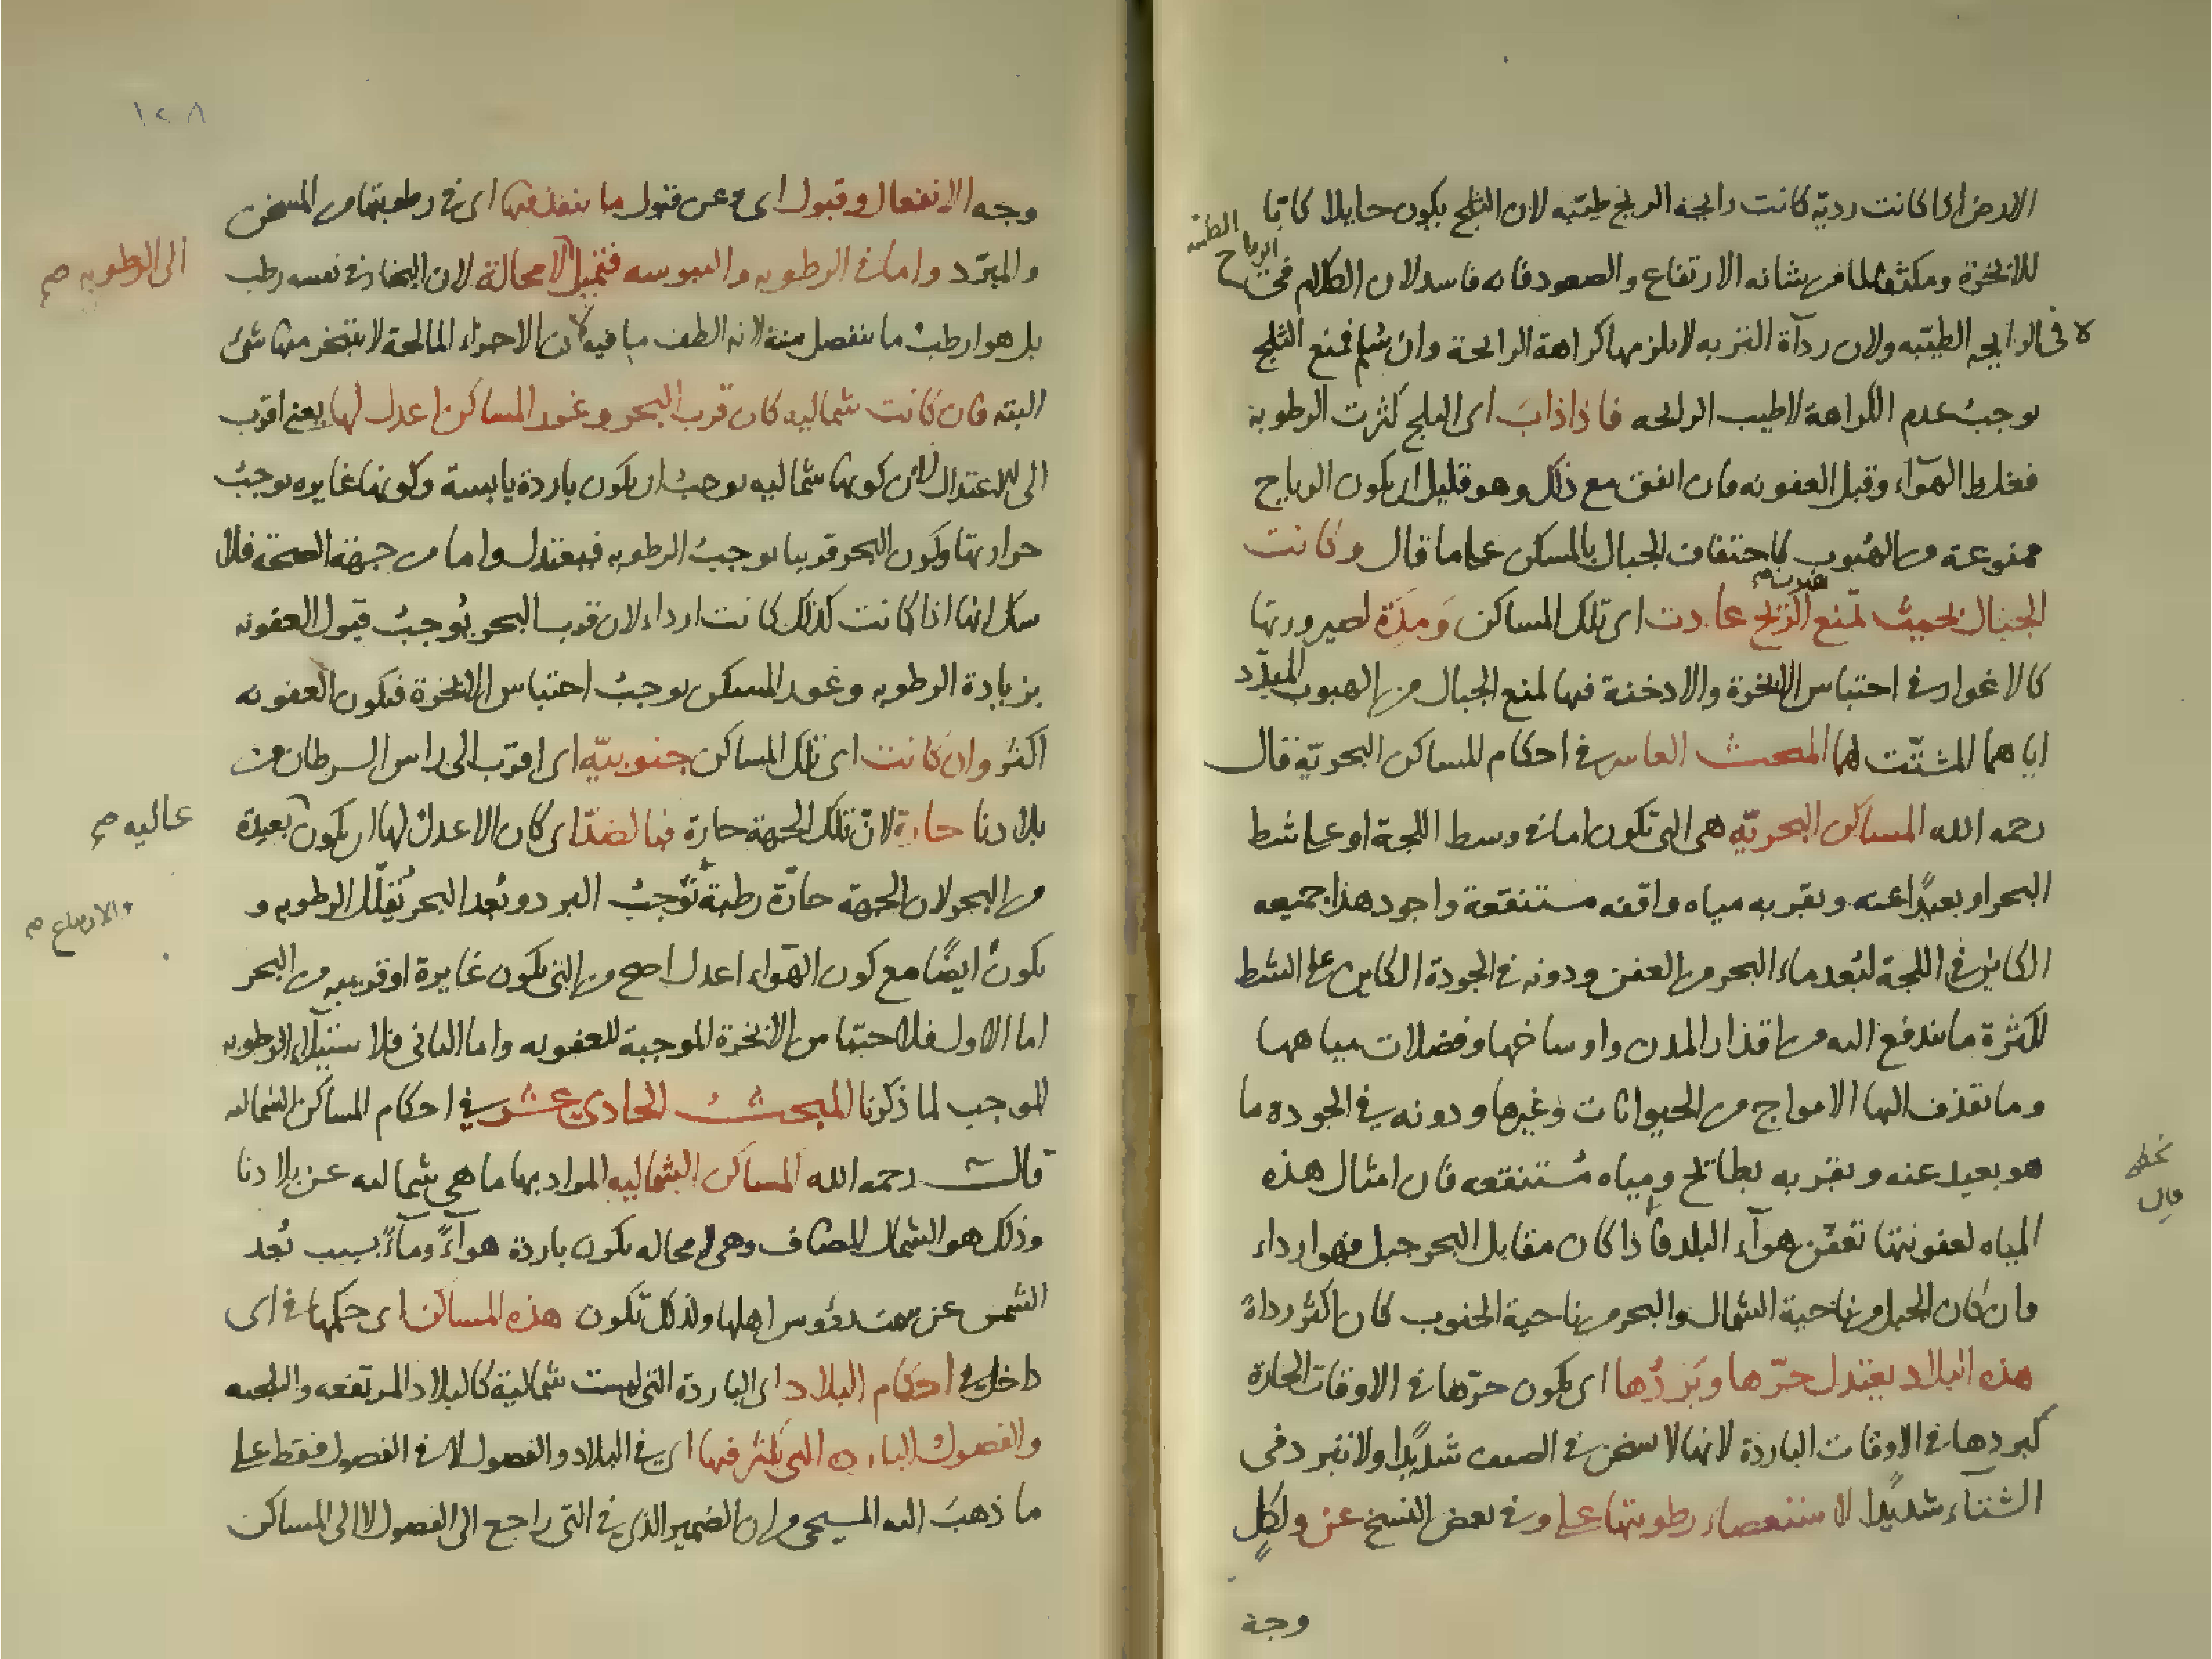 الارض اذا كانت ردية كانت رايحة الريح طيبه لان الثلج يكون حايلا كاتما
للابخرة ومكثفا لما من شانه الارتفاع والصعود فانه فاسد لان الكلام في
الرياح الطيبه
لا في الرايحه الطيبه ولان ردآة التربه لا يلزمها كراهة الرايحة وان سُلم فمنع الثلج
يوجبُ عدم الكراهة لا طيب الرايحه فاذا ذابَ اى الثلج كثرت الرطوبة
فغلط الهوآء وقبل العفونه فان اتفق مع ذلك وهو قليل ان يكون الرياح
ممنوعة من الهُبوب لاحتفاف الجبال بالمسكن على ما قال وكانت
الجبال بحيثُ تمنع الريح عادت اى تلك المساكن وَمدَة لصيرورتها
كالاغوار في احتباس الابخرة والادخنة فيها لمنع الجبال من الهبوب المبدّد
اياهما المشتّت لهما المبحث العاشر في احكام المساكن البحريّة قال
رحمه الله المساكن البحريّه هى التى تكون اما في وسط اللجة او على شط
البحر او بعيدًا عنه وبقربه مياه واقفه مستنقعة واجود هذا جميعه
الكاين في اللجة لبُعد ماء البحر من العفن ودونه في الجودة الكاين على الشط
لكثرة ما يندفع اليه من اقذار المدن واوساخها وفضلات مياهها
وما تقذف اليها الامواج من الحيوانات وغيرها ودونه في الجوده ما
هو بعيد عنه وبقربه بطائح ومياه مُستنقعه فان امثال هذه
المياه لعفونتها تعفن هوآء البلد فاذا كان مقابل البحر جبل فهو ارداء
فان كان الجبل من ناحية الشمال والبحر من ناحية الجنوب كان اكثر رداة
هذه البلاد يعتدل حرّها وبَردُها اى يكون حرّها في الاوقات الحارة
كبردها في الاوقات الباردة لانها لا تسخن في الصيف شديدًا ولا تبرد في
الشتآء شديدًا لاستعصاء رطوبتها على وفي بعض النسخ عن ولكلٍ
وجه
١٢٨
وجه الانفعال وقبول اى عن قبول ما ينفذ فيها اى في رطوبتها من المسخن
والمبرّد واما في الرطوبه واليبوسه فتميل لا محالة لان البخار في نفسه رطب
الى الرطوبه صح
بل هو ارطبُ ما ينفصل منه لانه الطف ما فيه لان الاجزاء المالحة لا يتبخر منها شئ
البته فان كانت شماليه كان قرب البحر وغور المساكن اعدل لها يعنى اقرب
الى الاعتدال لان كونها شماليه يوجبُ ان يكون باردة يابسة وكونها غايره يوجبُ
حرارتها وكون البحر قريبا يوجبُ الرطوبه فيعتدل واما من جهة الصحة فلا
شك انها اذا كانت كذلك كانت ارداء لان قرب البحر يُوجبُ قبول العفونه
بزيادة الرطوبه وغور المسكن يوجبُ احتباس الابخرة فيكون العفونه
اكثر وان كانت اى تلك المساكن جنوبيّه اى اقرب الى راس السرطان من
بلادنا حارة لانّ تلك الجهة حارة فبالضدّ اى كان الاعدل لها ان يكون بعيدة
عاليه صح
من البحر لان الجهة حارّة رطبة تُوجبُ البرد وبُعد البحر يُقلّل الرطوبه و
والارتفاع صح
يكون ايضًا مع كون الهوآء اعدل اصح من التى تكون غايرة او قريبه من البحر
اما الاول فلاحتباس الابخرة الموجبة للعفونه واما الثانى فلاستيلاء الرطوبه
الموجب لما ذكرنا المبحثُ الحادى عشر في احكام المساكن الشماليه
قالت رحمه الله المساكن الشماليه المراد بها ما هى شماليه عن بلادنا
وذلك هو الشمال المضاف وهى لا محاله يكون باردة هوآءً ومآءً بسبب بُعد
الشمس عن سمت رؤوس اهلها ولذلك تكون هذه المساكن اى حكمها في اى
داخل في احكام البلاد اى الباردة التى ليست شمالية كالبلاد المرتفعه والثلجيه
والفصول البارده التى تكثر فيها اى في البلاد والفصول لا في الفصول فقط على
ما ذهبَ اليه المسيحى من ان الضمير الذى في التى راجع الى الفصول لا الى المساكن